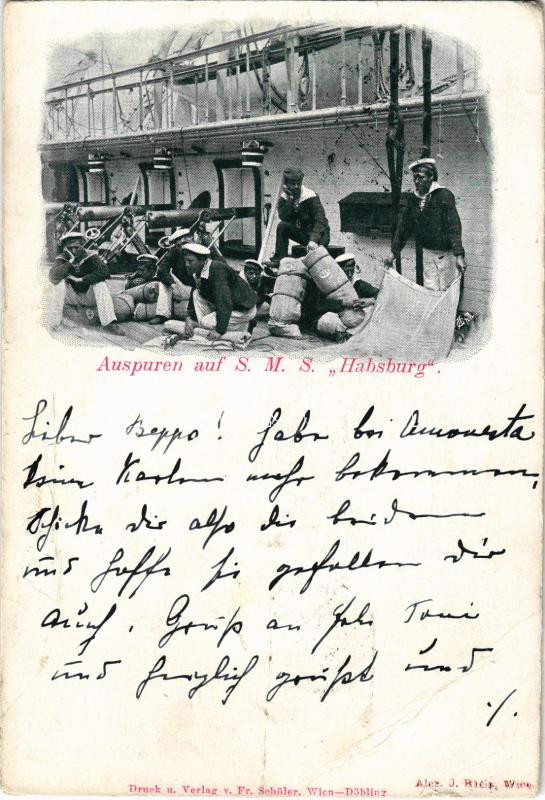 Auspuren auf S. M. S. „Habsburg“.
Lieber Beppo! Habe bei Amonesta
keine Karten mehr bekommen,
Schicke dir also die beiden
und hoffe sie gefallen dir
auch. Gruß an Toni
und herzlich grüßt und
./.
Druck u. Verlag v. Fr. Schöler, Wien—Döbling
Alex. J. Klein, Wien.